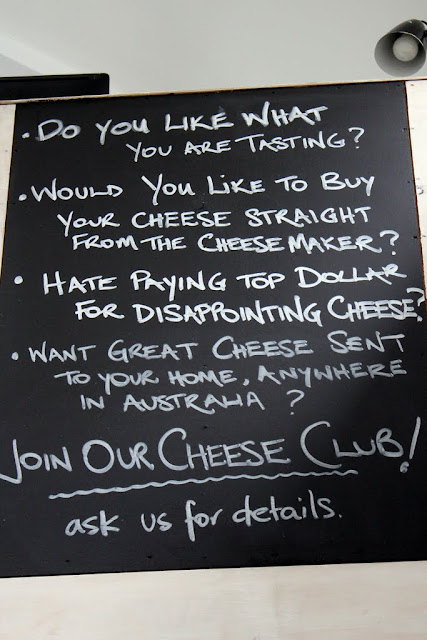 • Do you like what
you are tasting?
• Would you like to buy
your cheese straight
from the cheese maker?
• Hate paying top dollar
for disappointing cheese?
• Want great cheese sent
to your home, anywhere
in Australia ?
Join our cheese club!
ask us for details.